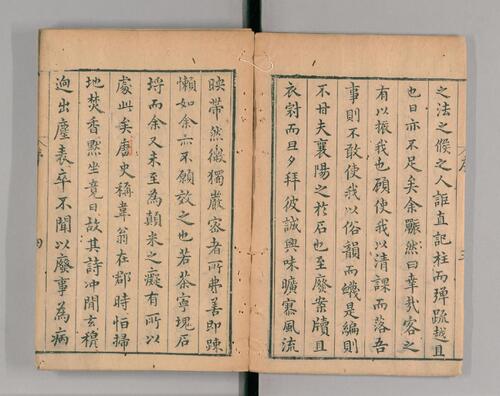 之法之候之人詎直記柱而殫䟽越且
也曰亦不足矣余囅然曰幸哉客之
有以振我也顧使我以清課而落吾
事則不敢使我以俗韻而蟣是編則
不甘夫襄陽之於石也至廢案牘且
衣冠而旦夕拜彼誠興味曠寡風流
序
三
映帶然微獨嚴客者所弗善即踈
懶如余亦不願效之也若茶寧瑰石
埒而余又未至為顛米之癡有所以
處此矣唐史稱韋翁在郡時恒掃
地焚香黙坐竟日故其詩冲閒玄穆
逈出塵表卒不聞以廢事為病
序
四